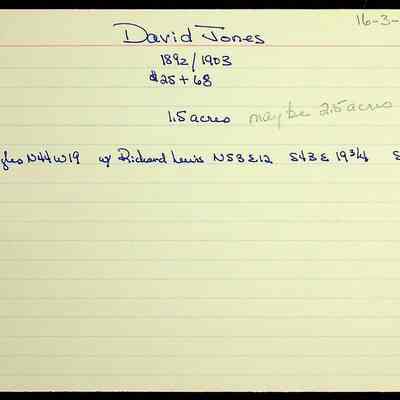 16-3-
David Jones
1892/1903
$25 + 68
1.5 acres maybe 2.5 acres
N44W19 w/ Richard Lewis N53E12 S43E 19 3/4 S